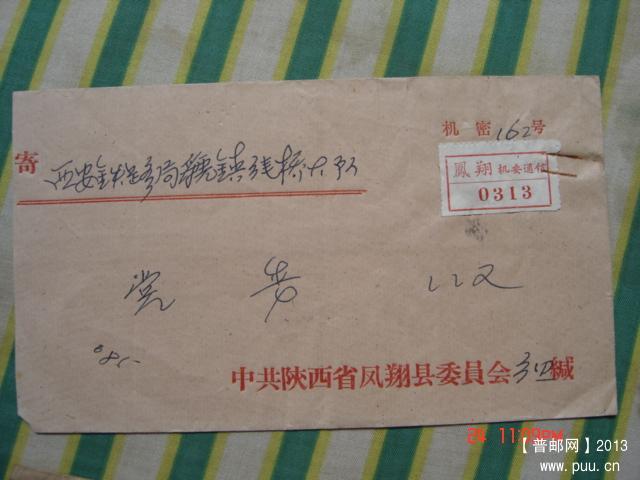 机密162号
寄
西安铁路局虢镇线桥大队
鳳翔 机要通信
0313
党 委 收
中共陕西省凤翔县委員会 缄
24 11:09PM
【普邮网】2013
www.puu.cn